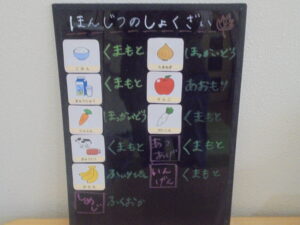 ほんじつのしょくざい
ごはん くまもと
たまねぎ ほっかいどう
ぎゅうにゅう くまもと
りんご あおもり
にんじん ほっかいどう
だいこん くまもと
くまもと
あつあげ くまもと
バナナ
いんげん くまもと
しめじ ふくおか